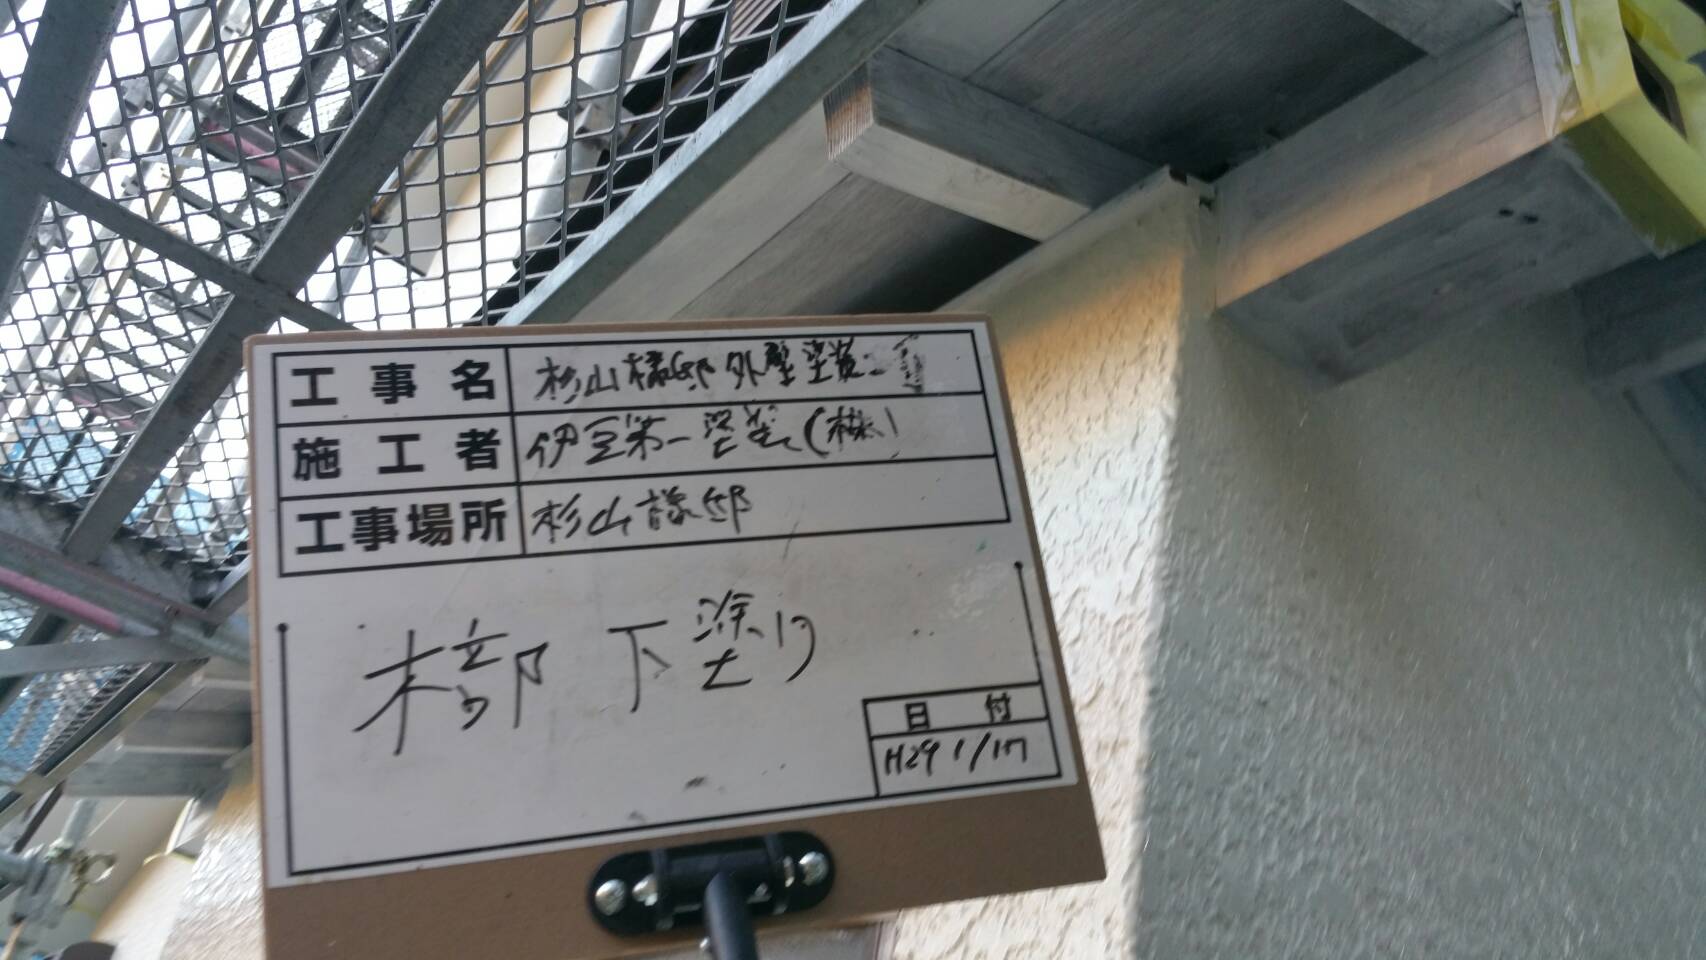 工事名 杉山様邸外壁塗装工
施工者 伊豆第一塗装(株)
工事場所 杉山様邸
木部 下塗り
日付
H29 1/17